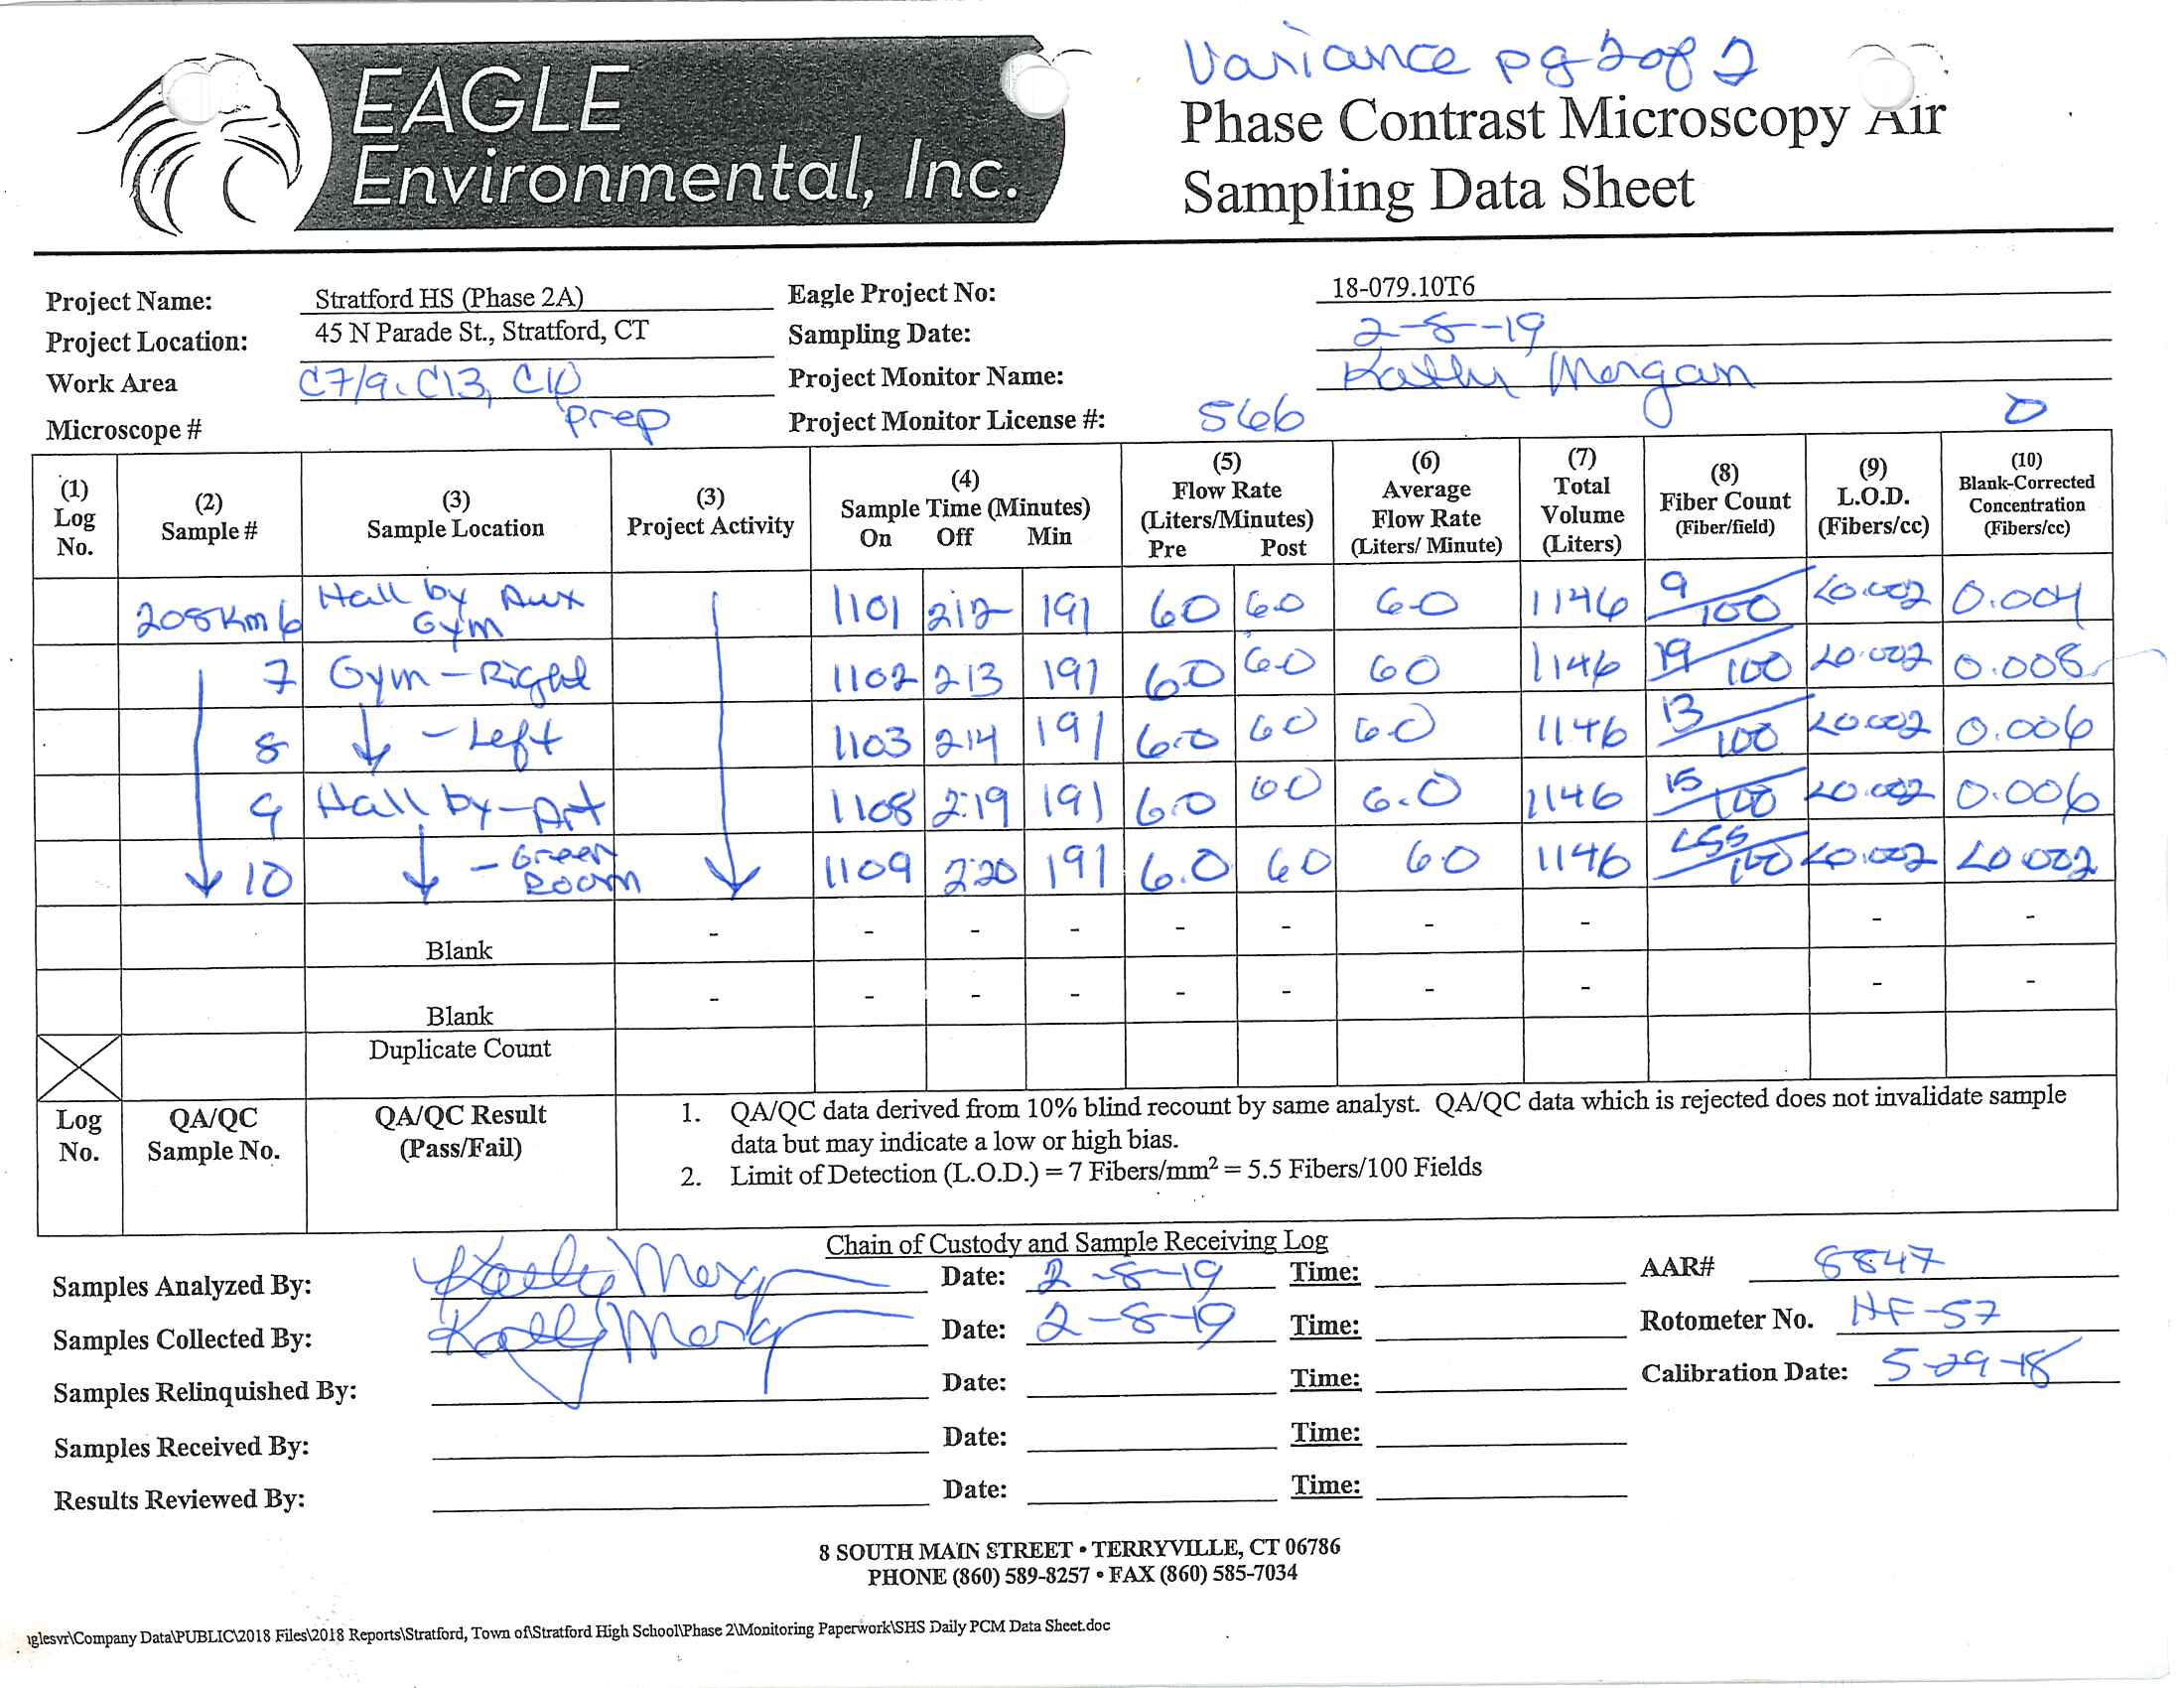 Variance pg 2 of 2
EAGLE
Environmental, Inc.
Phase Contrast Microscopy Air
Sampling Data Sheet
Project Name: Stratford HS (Phase 2A) Eagle Project No: 18-079.10T6
Project Location: 45 N Parade St., Stratford, CT Sampling Date: 2-8-19
Work Area C7/9, C13, C10 Project Monitor Name: Kathy Morgan
Microscope # Prep Project Monitor License #: 566 0
(1) Log No. (2) Sample # (3) Sample Location (3) Project Activity (4) Sample Time (Minutes) On Off Min (5) Flow Rate (Liters/Minutes) Pre Post (6) Average Flow Rate (Liters/ Minute) (7) Total Volume (Liters) (8) Fiber Count (Fiber/field) (9) L.O.D. (Fibers/cc) (10) Blank-Corrected Concentration (Fibers/cc)
208Km6 Hall by Aux Gym 1101 212 191 60 60 60 1146 9/100 <0.002 0.004
7 Gym - Right 1102 213 191 6.0 60 60 1146 19/100 <0.002 0.008
8 - Left 1103 214 191 6.0 60 60 1146 13/100 <0.002 0.006
9 Hall by - Art 1108 2:19 191 6.0 60 6.0 1146 15/100 <0.002 0.006
10 - Green Room 1109 2:20 191 6.0 60 60 1146 <55/100 <0.002 <0.002
Blank - - - - - - - - - -
Blank - - - - - - - - - -
Duplicate Count
Log No. QA/QC Sample No. QA/QC Result (Pass/Fail)
1. QA/QC data derived from 10% blind recount by same analyst. QA/QC data which is rejected does not invalidate sample
data but may indicate a low or high bias.
2. Limit of Detection (L.O.D.) = 7 Fibers/mm² = 5.5 Fibers/100 Fields
Chain of Custody and Sample Receiving Log
Samples Analyzed By: Kathy Morgan Date: 2-8-19 Time: AAR# 8847
Samples Collected By: Kathy Morgan Date: 2-8-19 Time: Rotometer No. HF-57
Samples Relinquished By: Date: Time: Calibration Date: 5-29-18
Samples Received By: Date: Time:
Results Reviewed By: Date: Time:
8 SOUTH MAIN STREET • TERRYVILLE, CT 06786
PHONE (860) 589-8257 • FAX (860) 585-7034
iglesvr\Company Data\PUBLIC\2018 Files\2018 Reports\Stratford, Town of\Stratford High School\Phase 2\Monitoring Paperwork\SHS Daily PCM Data Sheet.doc